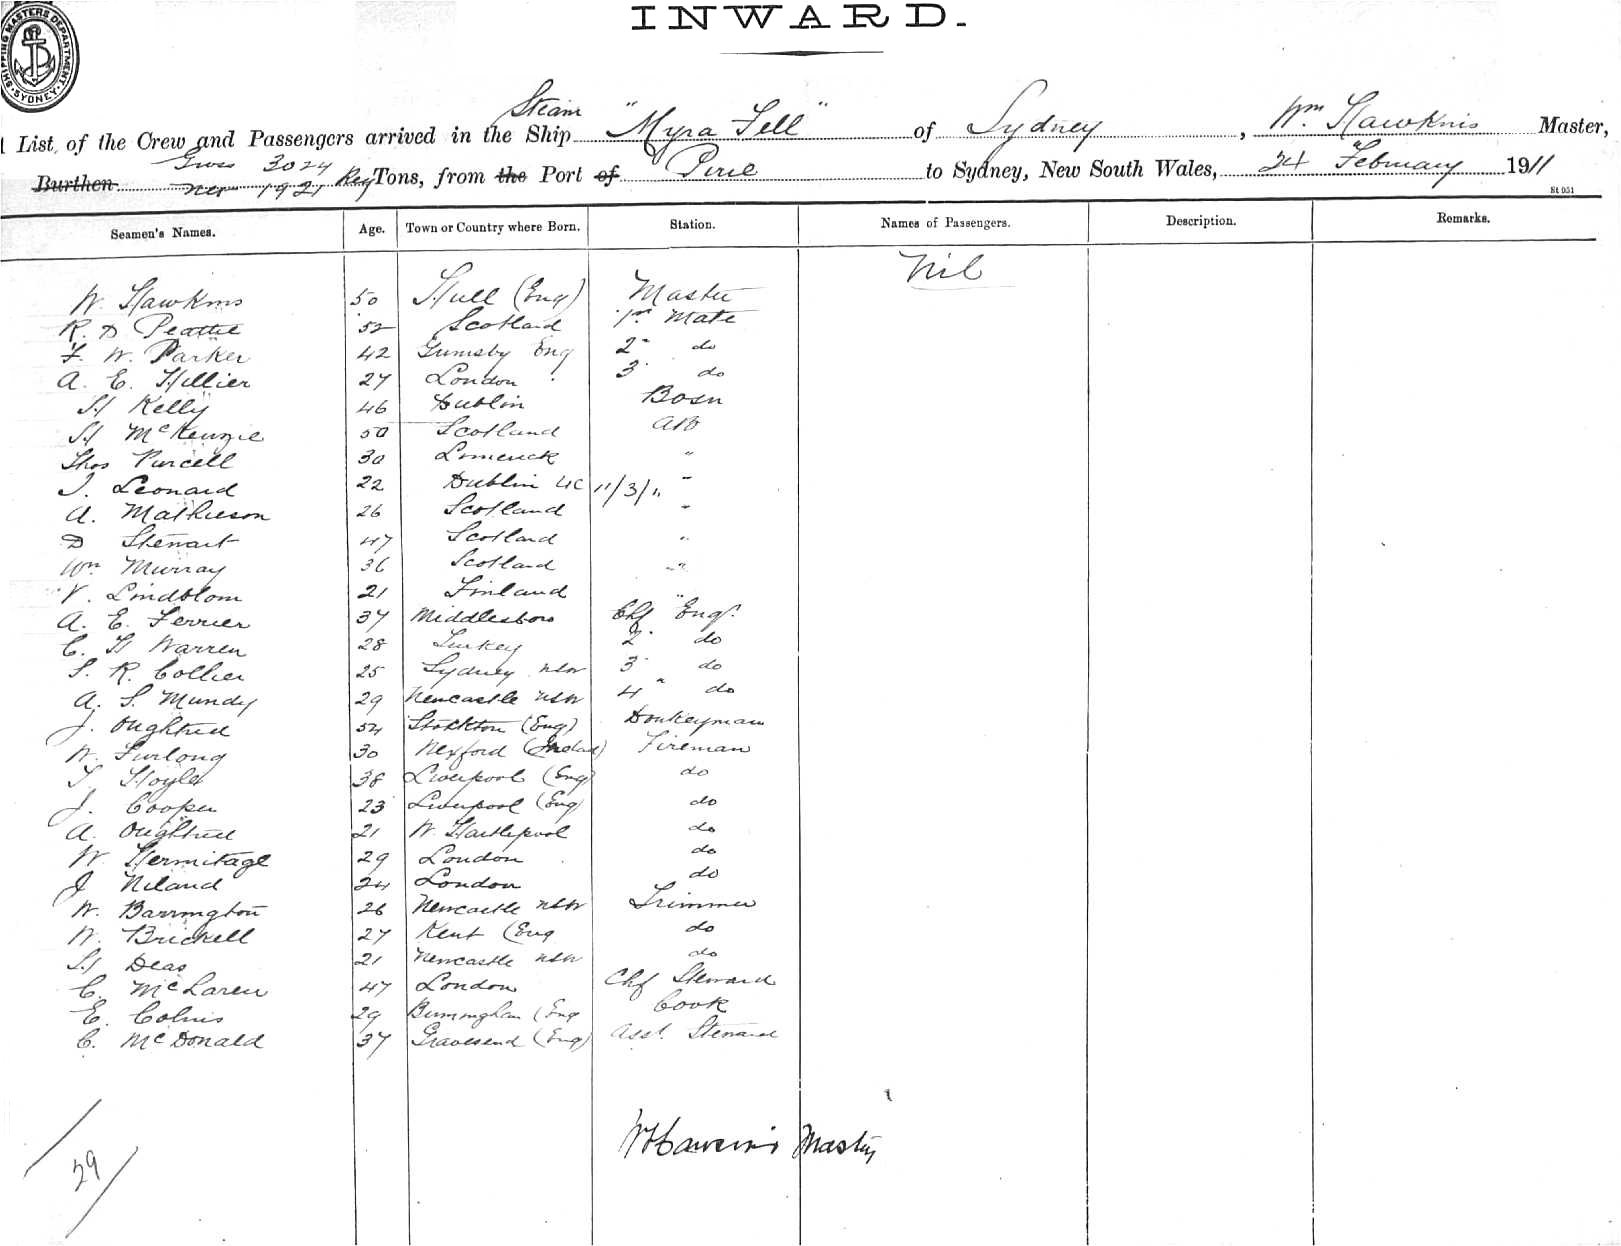 INWARD.
SHIPPING MASTERS DEPARTMENT SYDNEY
Steam
List of the Crew and Passengers arrived in the Ship "Myra Fell" of Sydney, Wm Hawkins Master,
Gross 3024
Burthen Net 1921 Reg Tons, from the Port of Pirie to Sydney, New South Wales, 24 February 1911
St 051
Seamen's Names. Age. Town or Country where Born. Station. Names of Passengers. Description. Remarks.
Nil
W. Hawkins 50 Hull (Eng) Master
R. D Peattie 52 Scotland 1st Mate
F. W. Parker 42 Grimsby Eng 2" do
A. E. Hillier 27 London 3 do
H Kelly 46 Dublin Bosn
H McKenzie 50 Scotland AB
Thos Purcell 30 Limerick "
J. Leonard 22 Dublin 11/3/11 "
A. Mathieson 26 Scotland "
D Stewart 47 Scotland "
Wm Murray 36 Scotland "
V. Lindblom 21 Finland "
A. E. Ferrier 37 Middlesboro Chf Engr.
C. H Warren 28 Turkey 2" do
S. R. Collier 25 Sydney NSW 3" do
A. S. Mundy 29 Newcastle NSW 4" do
J. Oughtred 54 Stockton (Eng) Donkeyman
W. Furlong 30 Wexford Fireman
T. Hoyle 38 Liverpool (Eng) do
J. Cooper 23 Liverpool (Eng) do
A. Oughtred 21 W. Hartlepool do
W. Hermitage 29 London do
J Niland 24 London do
W. Barrington 26 Newcastle NSW Trimmer
W. Brickell 27 Kent (Eng do
H Deas 21 Newcastle NSW do
C. McLaren 47 London Chf Steward
E. Colnis 29 Birmingham (Eng Cook
C. McDonald 37 Gravesend (Eng) Asst. Steward
W Hawkins Master
29